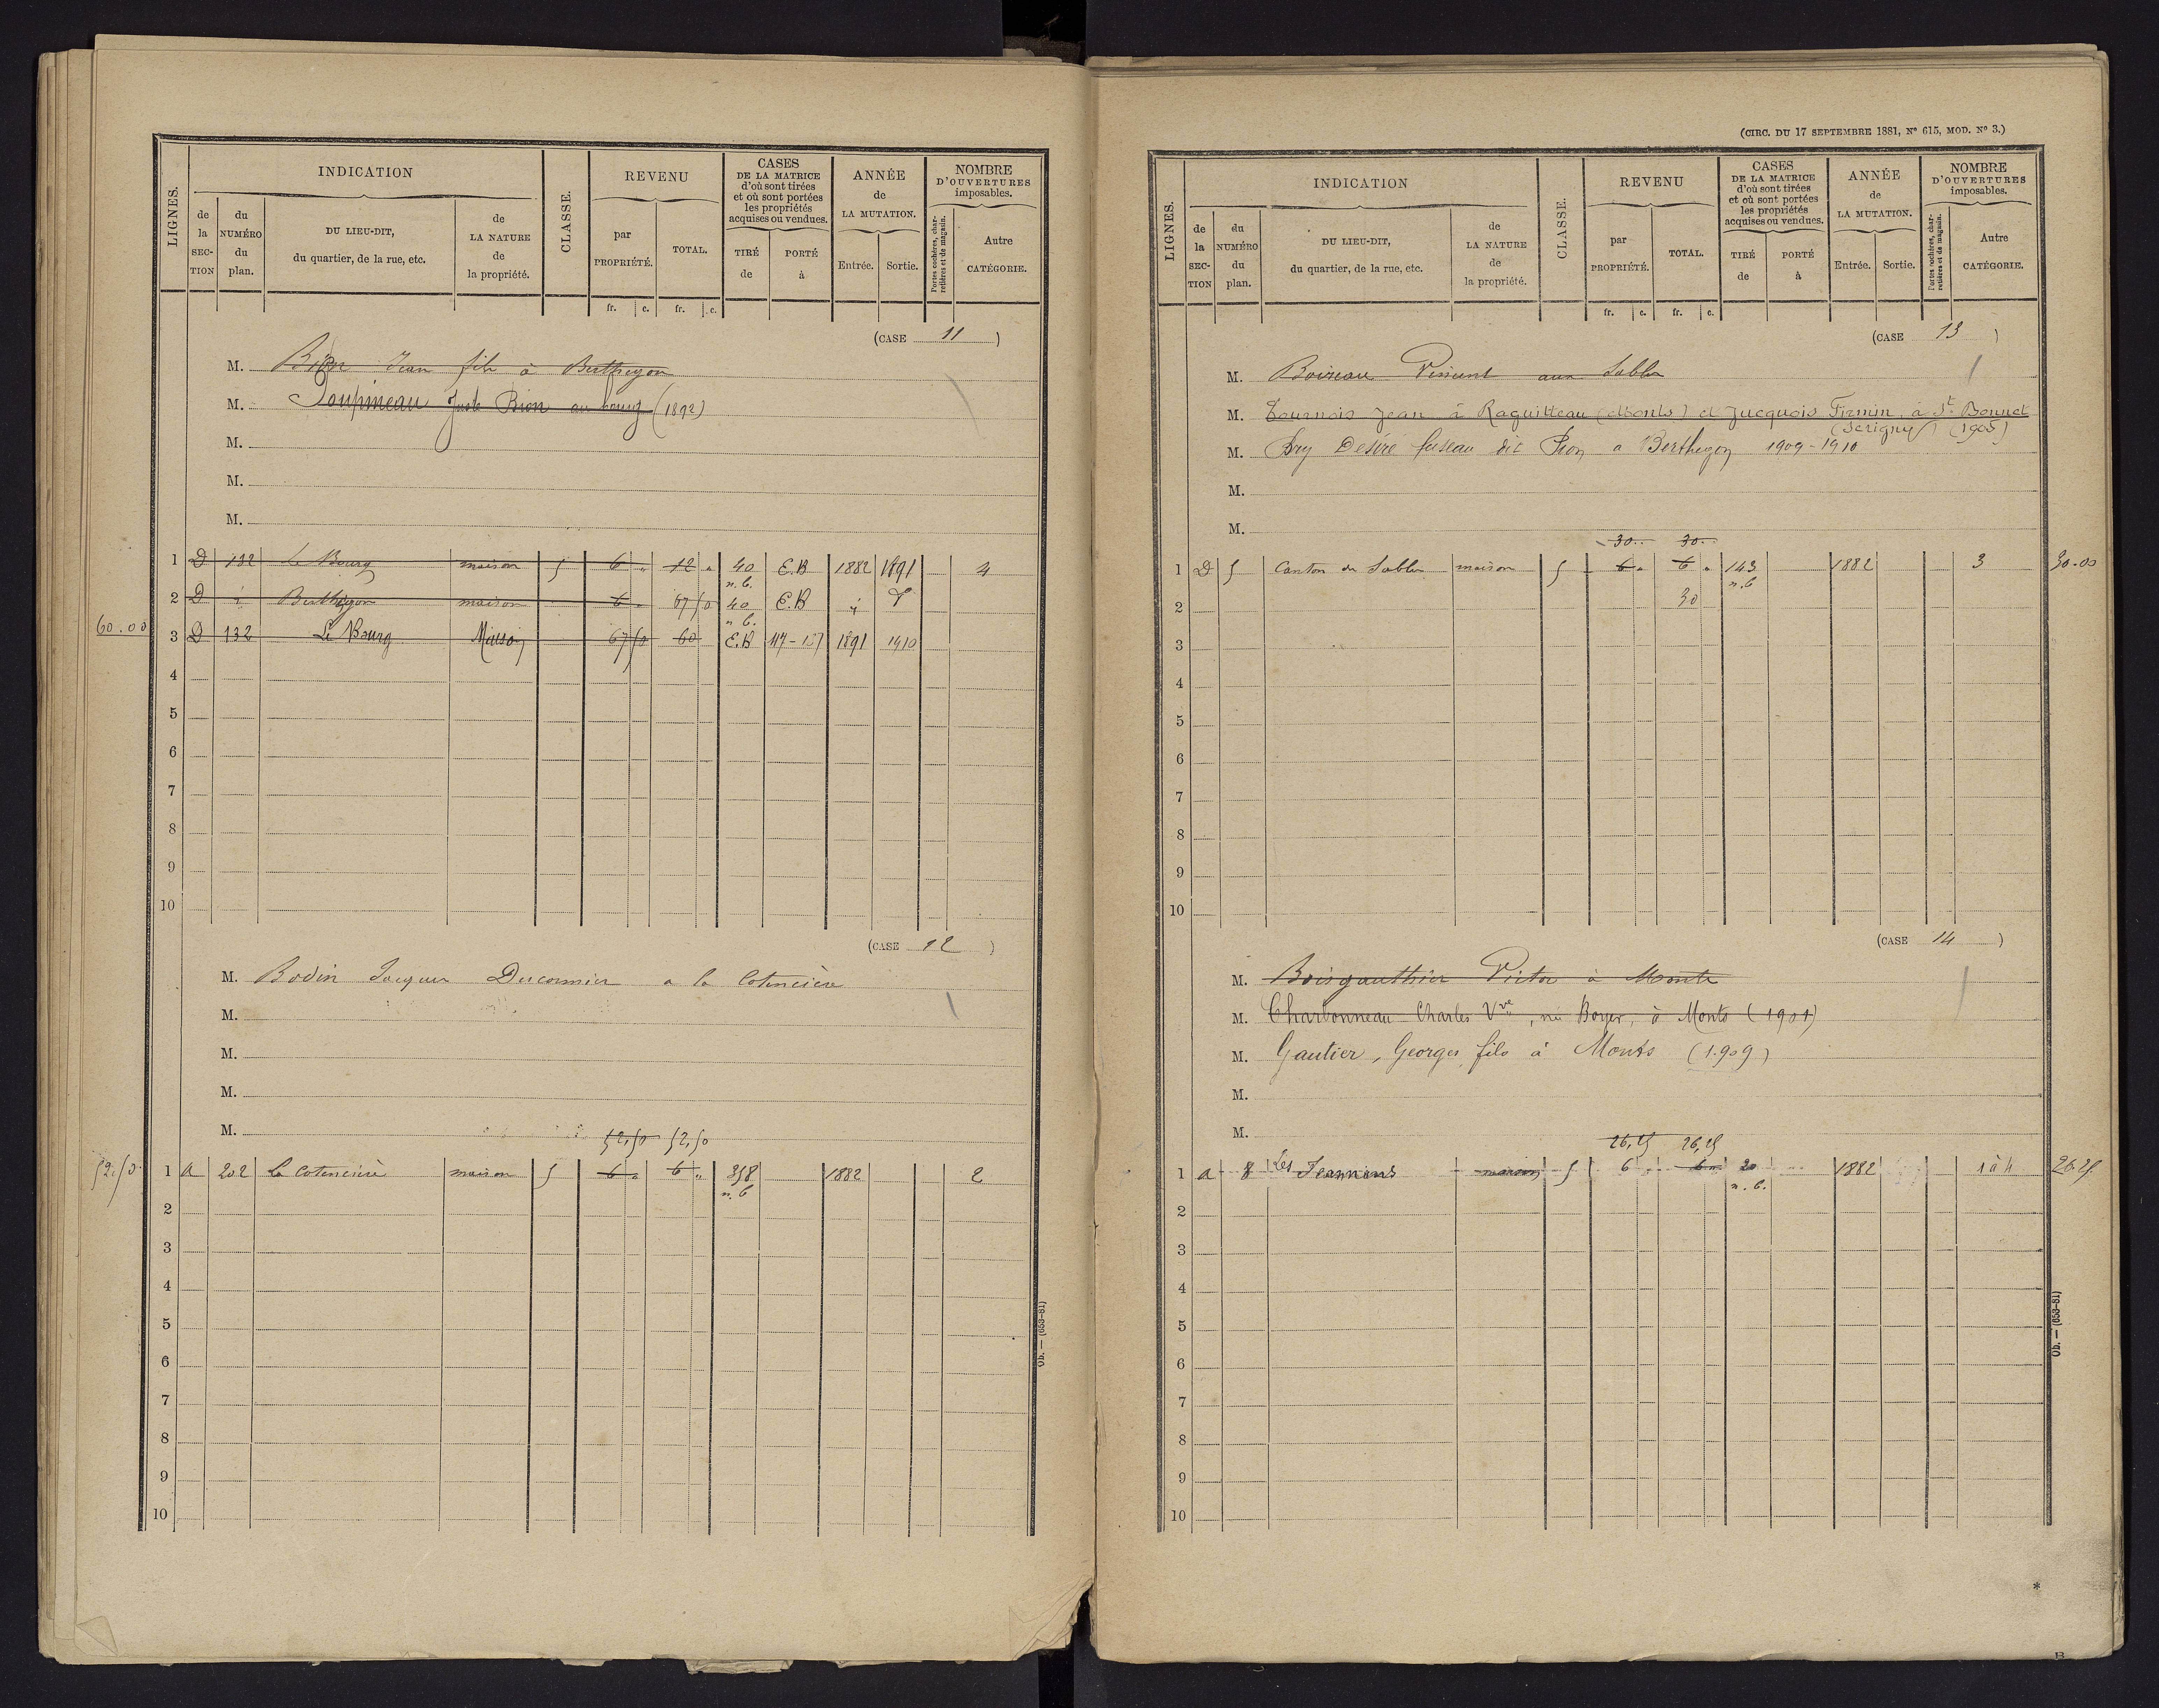 LIGNES. INDICATION CLASSE. REVENU CASES DE LA MATRICE d'où sont tirées et où sont portées les propriétés acquises ou vendues. ANNÉE de LA MUTATION. NOMBRE D'OUVERTURES imposables.
de la SEC-TION du NUMÉRO du plan. DU LIEU-DIT, du quartier, de la rue, etc. de LA NATURE de la propriété. par PROPRIÉTÉ. TOTAL. TIRÉ de PORTÉ à Entrée. Sortie. Portes cochères, charretières et de magasin. Autre CATÉGORIE.
fr. c. fr. c.
(CASE 11 )
M. Bion Jean fils à Berthegon
M. Poupineau Juste Bion au bourg (1892)
M.
M.
M.
1 D 132 Le Bourg maison 5 6 " 12 " 40 n.b. E.B 1882 1891 4
2 D i Berthegon maison 6 " 67 50 40 n b. E.B i
60.00 3 D 132 Le Bourg Maison 67 50 60 E.B 117-157 1891 1910
4
5
6
7
8
9
10
(CASE 12 )
M. Bodin Jacques Ducormier a la Cotencière
M.
M.
M.
M.
52,50 52,50
52.50 1 A 202 La Cotencière maison 5 6 " 6 " 358 n.b 1882 2
2
3
4
5
6
7
8
9
10
Ob. — (653-81)
(CIRC. DU 17 SEPTEMBRE 1881, N° 615, MOD. N° 3.)
LIGNES. INDICATION CLASSE. REVENU CASES DE LA MATRICE d'où sont tirées et où sont portées les propriétés acquises ou vendues. ANNÉE de LA MUTATION. NOMBRE D'OUVERTURES imposables.
de la SEC-TION du NUMÉRO du plan. DU LIEU-DIT, du quartier, de la rue, etc. de LA NATURE de la propriété. par PROPRIÉTÉ. TOTAL. TIRÉ de PORTÉ à Entrée. Sortie. Portes cochères, charretières et de magasin. Autre CATÉGORIE.
fr. c. fr. c.
(CASE 13 )
M. Boireau Vincent aux Sables
M. Tournois Jean à Raguitteau (Monts) et Jucquois Firmin, à St Bonnet
(Serigny) (1905)
M. Bry Désiré fuseau dit Pion a Berthegon 1909-1910
M.
M.
30.. 30..
1 D 5 Canton des Sables maison 5 6 " 6 " 143 n.b 1882 3 30.00
2 30
3
4
5
6
7
8
9
10
(CASE 14 )
M. Boisgauthier Victor à Monts
M. Charbonneau Charles Vve, née Boyer, à Monts (1901)
M. Gautier, Georges fils à Monts (1909)
M.
M.
26,25 26,25
1 A 8 Les Jeannins maison 5 6 " 6 " 20 n.b. 1882 1 à 4 26.25
2
3
4
5
6
7
8
9
10
Ob. — (653-81)
*